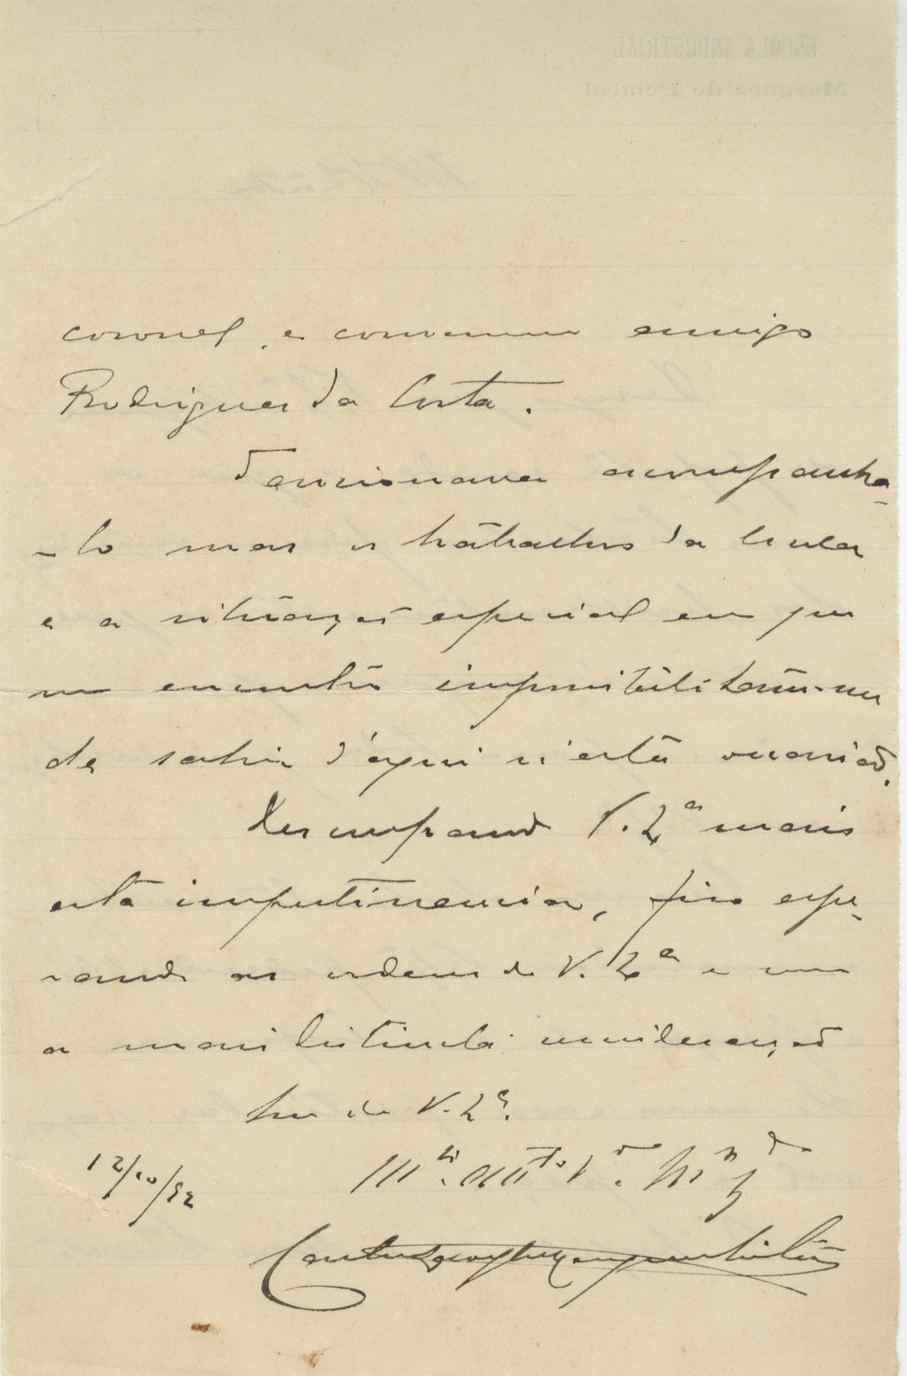 ESCOLA INDUSTRIAL
Marquez de Pombal
coronel e commum amigo
Rodrigues da Costa.
Tencionava acompanha-
-lo mas os trabalhos da Escola
e a situação especial em que
me encontro impossibilitam-me
de sahir d'aqui n'esta occasião.
Desculpando V. Ex.ª mais
esta impertinencia, fico espe-
rando as ordens de V. Ex.ª e com
a mais distincta consideração
Sou de V. Ex.ª
12/10/92
m.to att.to V.or